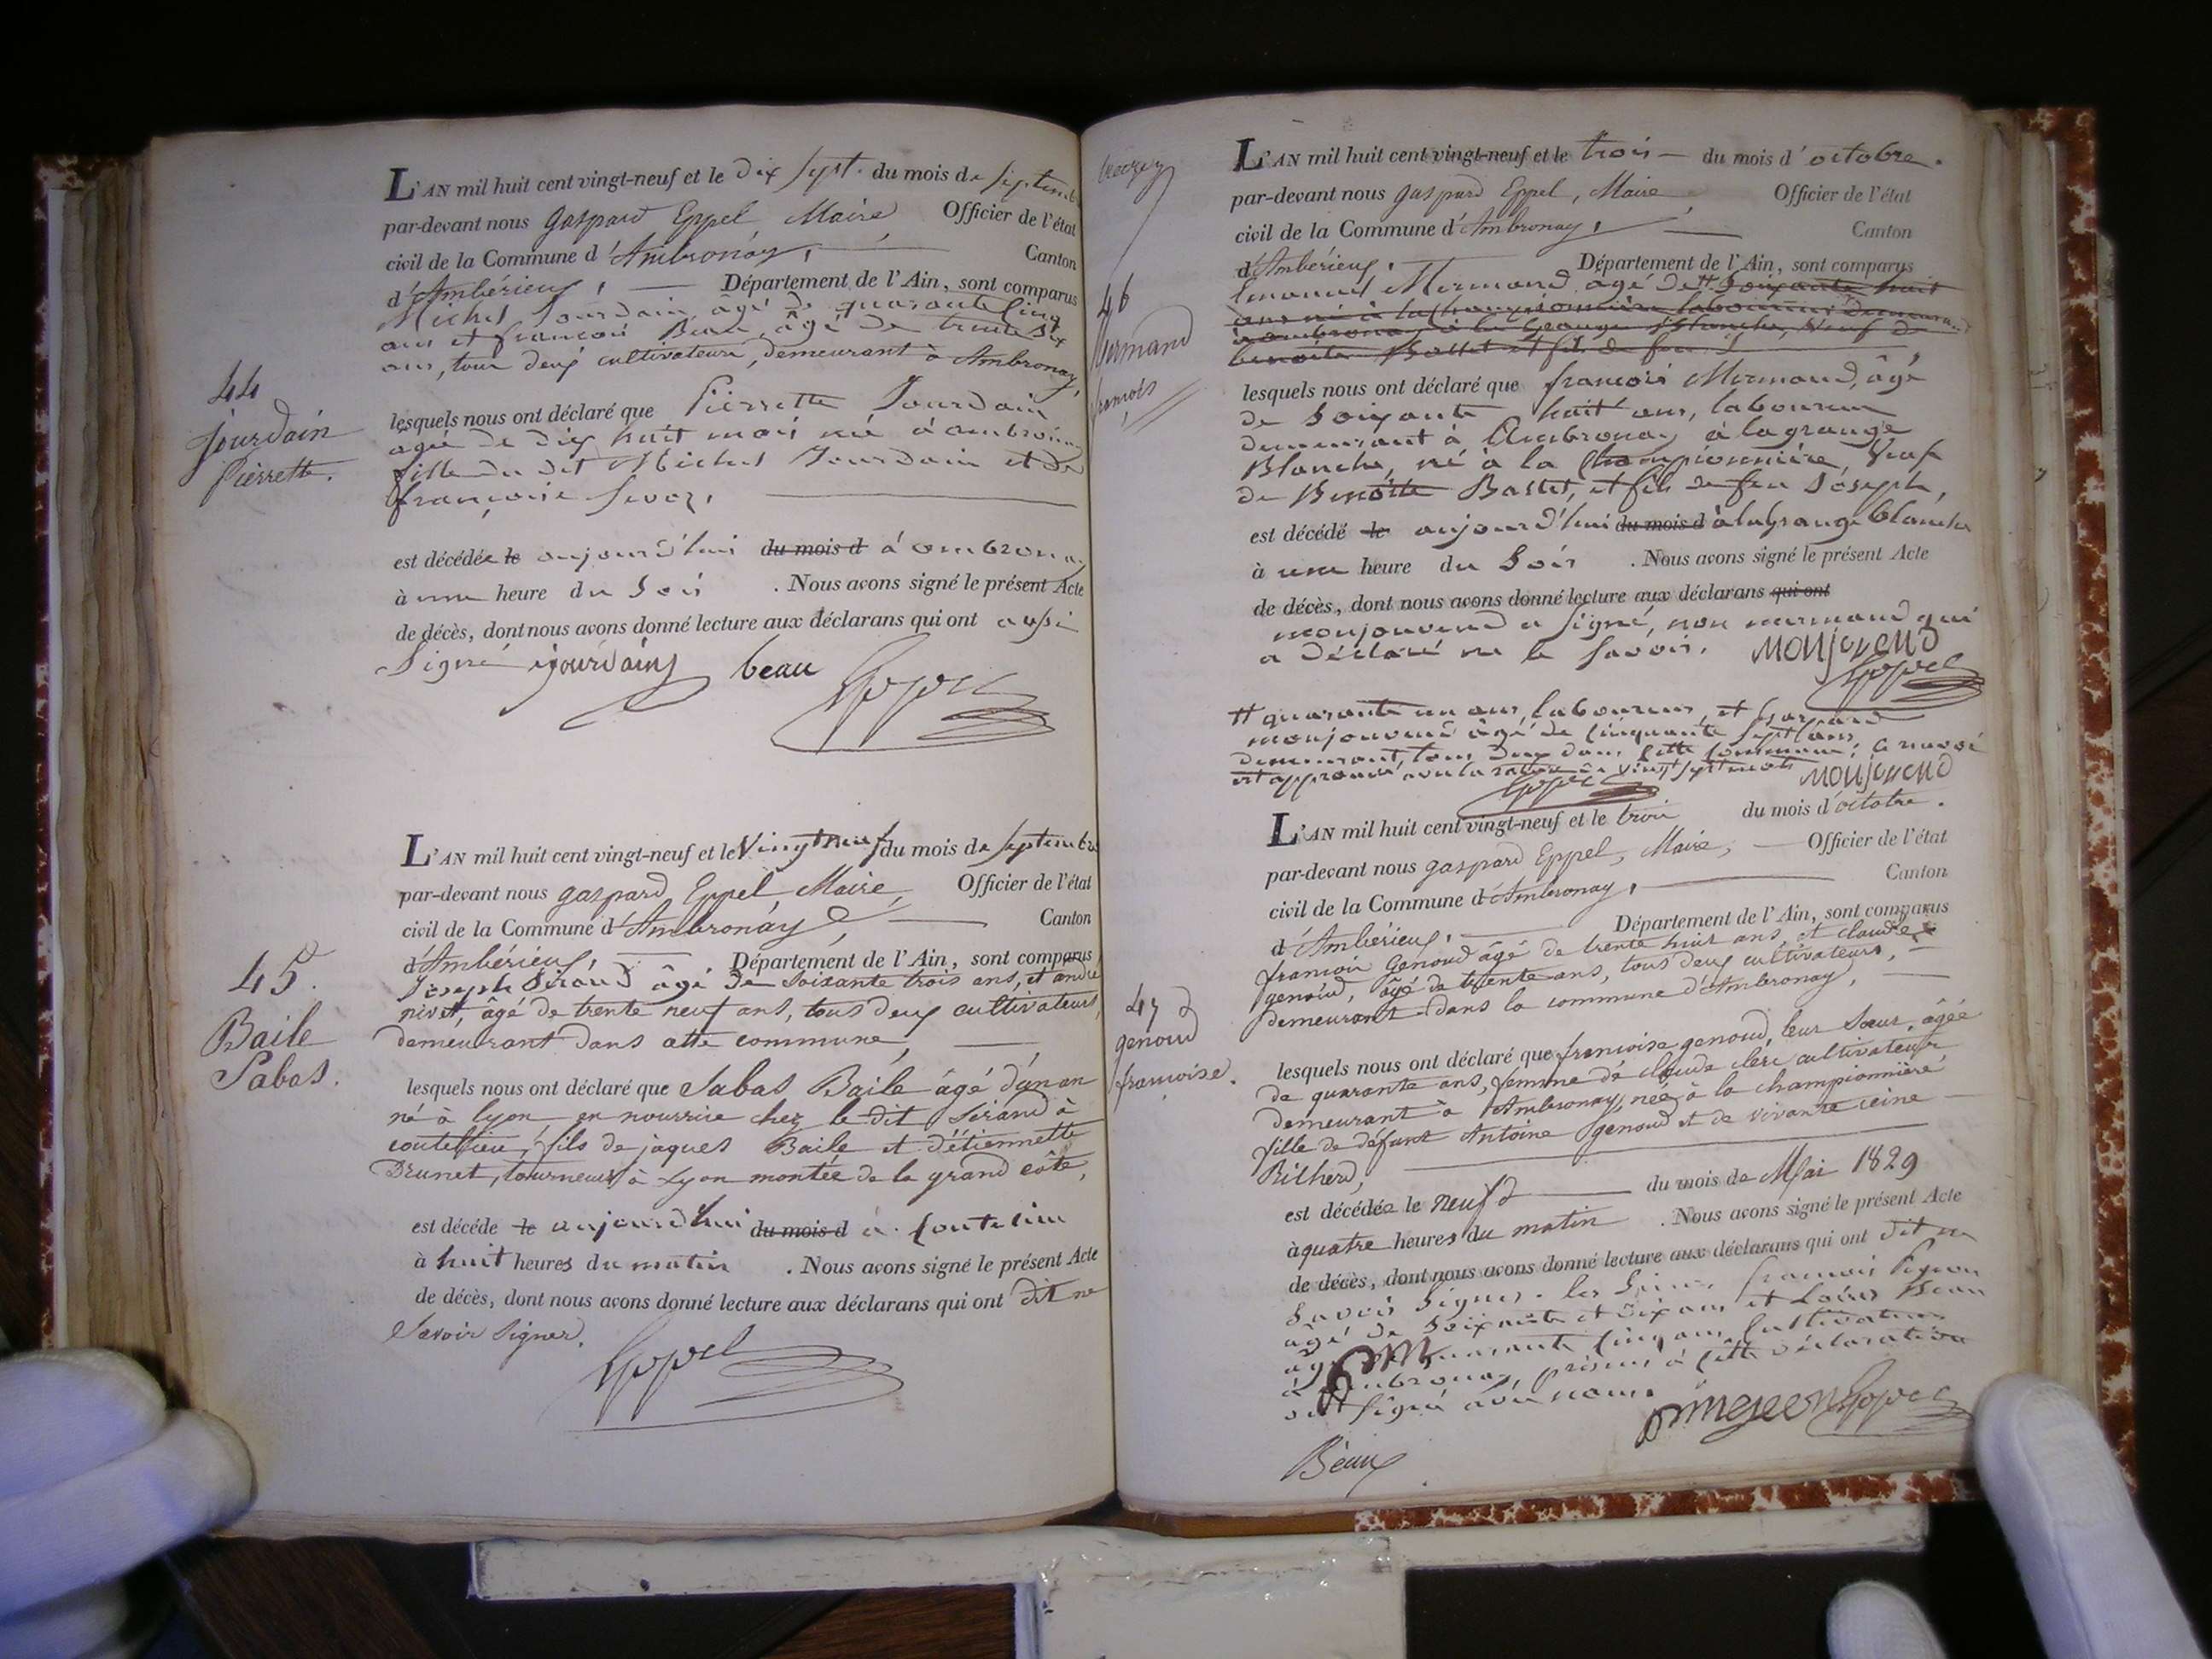 L'AN mil huit cent vingt-neuf et le dix sept. du mois de septemb
par-devant nous gaspard Eppel Maire Officier de l'état
civil de la Commune d'Ambronay, Canton
d'Ambérieux, Département de l'Ain, sont comparus
Michel Jourdain âgé de quarante cinq
ans et francois Beau âgé de trente six
ans, tous deux cultivateurs, demeurant à Ambronay,
44
jourdain
Pierrette.
lesquels nous ont déclaré que Pierrette Jourdain
agée de dix huit mois née à ambronay
fille du dit Michel Jourdain et de
françoise
est décédée le aujourd'hui du mois d à ambronay
à une heure du Soir . Nous avons signé le présent Acte
de décès, dont nous avons donné lecture aux déclarans qui ont aussi
Signé jourdain beau Eppel
L'AN mil huit cent vingt-neuf et le Vingt neuf du mois de septembre
par-devant nous gaspard Eppel, Maire, Officier de l'état
civil de la Commune d'Ambronay, Canton
d'Ambérieux, Département de l'Ain, sont comparus
Joseph Sirand âgé de Soixante trois ans, et andré
nivet, âgé de trente neuf ans, tous deux cultivateurs,
demeurant dans cette commune,
45.
Baile
Sabas.
lesquels nous ont déclaré que Sabas Baile âgé d'un an
né à lyon, en nourrice chez le dit Sirand à
coutelieu, fils de jaques Baile et d'étiennette
Brunet, tourneur à Lyon montée de la grand côte,
est décédé le aujourd'hui du mois d à Coutelieu
à huit heures du matin . Nous avons signé le présent Acte
de décès, dont nous avons donné lecture aux déclarans qui ont dit ne
Savoir Signer.
Eppel
L'AN mil huit cent vingt-neuf et le trois du mois d'octobre.
par-devant nous gaspard Eppel, Maire Officier de l'état
civil de la Commune d'Ambronay, Canton
d'Ambérieux, Département de l'Ain, sont comparus
Emanuel Mermand âgé de # Soixante huit
ans né à la championnière laboureur demeurant
à ambronay à la Grange Blanche, Veuf de
benoite Battet et fils de feu J
46
Mermand
françois
lesquels nous ont déclaré que francois Mermand, âgé
de Soixante huit ans, laboureur
demeurant à Ambronay à la grange
Blanche, né à la Championnière, Veuf
de Benoitte Battet, et fils de feu Joseph,
est décédé le aujourd'hui du mois d à la Grange blanche
à une heure du Soir . Nous avons signé le présent Acte
de décès, dont nous avons donné lecture aux déclarans qui ont
monjouvend a signé, non mermand qui
a déclaré ne le savoir. monjovend
Eppel
# quarante un ans, laboureur, et
monjouvend âgé de cinquante sept ans
demeurant tous deux dans cette commune; ce renvoi
est approuvé avec la rature de vingt sept mots monjovend
Eppel
L'AN mil huit cent vingt-neuf et le trois du mois d'octobre.
par-devant nous gaspard Eppel, Maire, Officier de l'état
civil de la Commune d'Ambronay, Canton
d'Ambérieux, Département de l'Ain, sont comparus
francois Genoud âgé de trente huit ans, et claude
genoud, âgé de trente ans, tous deux cultivateurs,
demeurant dans la commune d'Ambronay,
47
genoud
francoise.
lesquels nous ont déclaré que francoise genoud, leur Sœur, âgée
de quarante ans, femme de claude clerc cultivateur
demeurant à Ambronay, née à la championnière
fille de défunt Antoine genoud et de vivante reine
Richerd,
est décédée le neuf du mois de Mai 1829
à quatre heures du matin . Nous avons signé le présent Acte
de décès, dont nous avons donné lecture aux déclarans qui ont dit ne
Savoir Signer. les Srs francois
âgé de soixante et dix ans et Louis Beau
âgé quarante cinq ans, cultivateurs
à Ambronay, présens à cette déclaration
ont signé avec nous.
Eppel
Beau